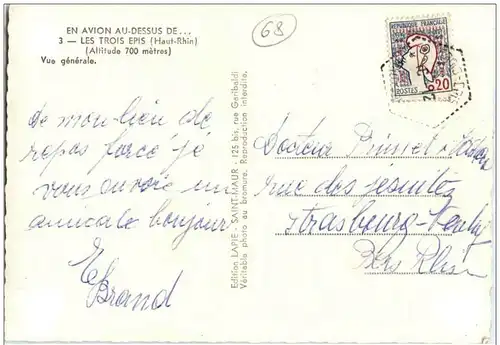 EN AVION AU-DESSUS DE...
3 — LES TROIS EPIS (Haut-Rhin)
(Altitude 700 mètres)
Vue générale.
68
REPUBLIQUE FRANÇAISE
POSTES 0,20
de mon lieu de
repos forcé je
vous envoie un
amicale bonjour
E Brand
Edition LAPIE - SAINT-MAUR - 125 bis, rue Garibaldi
Véritable photo au bromure. Reproduction interdite.
Docteur
rue des jésuites
Strasbourg-
Bas Rhin